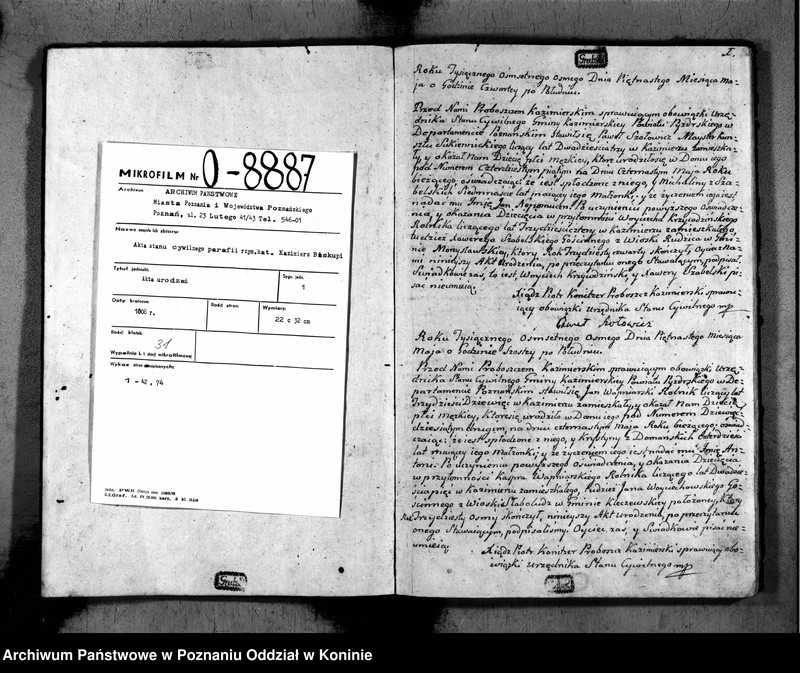 MIKROFILM Nr O-8887
Archiwum ARCHIWUM PAŃSTWOWE
Miasta Poznania i Województwa Poznańskiego
Poznań, ul. 23 Lutego 41/43 Tel. 546-01
Nazwa zespołu lub zbioru:
Akta stanu cywilnego parafii rzym.kat. Kazimierz Biskupi
Tytuł jednostki
Akta urodzeń
Sygn. jedn.
1
Daty krańcowe
1808 r.
Ilość stron:
Wymiary:
22 c 32 cm
Ilość klatek:
31
Wypełnia k. t. stacji mikrofilmowej
Wykaz stron
1 - 42, 74
I.
Roku Tysiącznego Osmsetnego Osmego Dnia Piętnastego Miesiąca Ma-
ja o Godzinie Czwartey po Południu.
Przed Nami Proboszczem Kazimirskim sprawuiącym obowiązki Urzę-
dnika Stanu Cywilnego Gminy Kazimirskiey Powiatu Pyzdrskiego w
Departamencie Poznańskim stawił się Paweł Szołowicz Mayster Kun-
sztu Sukiennickiego liczący lat Dwadzieściatrzy w Kazimirzu zamieszka-
ły, y okazał Nam Dziecię płci męzkiey, które urodziło się w Domu iego
pod Numerem Czterdziestym piątym na Dniu Czternastym Maja Roku
bieżącego; oswiadczaiąc iż iest spłodzone z niego, y Michaliny z Sza-
belskich Siedmnaście lat maiącey iego Małżonki; y że życzeniem iego iest
nadać mu Imię Jan Nepomucen. Po uczynieniu powyższego Oswiadcze-
nia, y okazania Dziecięcia w przytomności Woyciecha Krzywdzińskiego
Rolnika liczącego lat Trzydzieścicztery w Kazimirzu zamieszkałego,
tudzież Xawerego Szabelskiego Gościnnego z Wioski Rudzica w Gmi-
nie Morzysławskiey, który Rok Trzydziesty czwarty skończył, Oyciec z Na-
mi ninieyszy Akt Urodzenia, po przeczytaniu onego Stawaiącym, podpisał,
Swiadkowie zaś, to iest, Woyciech Krzywdziński, y Xawery Szabelski pi-
sać nieumieią.
Xiądz Piotr Konitzer Proboszcz Kazimirski sprawu-
iący obowiązki Urzędnika Stanu Cywilnego mp
Paweł Szołowicz
Roku Tysiącznego Osmsetnego Osmego Dnia Piętnastego miesiąca
Maja o Godzinie Szostey po Południu.
Przed Nami Proboszczem Kazimirskim sprawuiącym obowiązki Urzę-
dnika Stanu Cywilnego Gminy Kazimirskiey Powiatu Pyzdrskiego w De-
partamencie Poznańskim stawił się Jan Wapniarski Rolnik liczący lat
Trzydzieści Dziewięć w Kazimirzu zamieszkały, y okazał Nam Dziecię
płci męzkiey, które się urodziło w Domu iego pod Numerem Dziewięć-
dziesiątym drugim, na dniu czternastym Maja Roku bieżącego; oswiad-
czaiąc; że iest spłodzone z niego, y Krystyny z Domańskich Czterdzieści
lat maiącey iego Małżonki; y że życzeniem iego iest nadać mu Imię An-
toni. Po uczynieniu powyższego oswiadczenia, y okazania Dziecięcia
w przytomności Kaspra Wapniarskiego Rolnika liczącego lat Dwadzie-
ścia pięć w Kazimirzu zamieszkałego, tudzież Jana Woyciechowskiego Go-
ścinnego z Wioski Slaboludz w Gminie Kleczewskiey położoney, który
Rok Trzydziesty Osmy skończył, ninieyszy Akt Urodzenia, po przeczytaniu
onego Stawaiącym, podpisaliśmy. Oyciec zaś, y Swiadkowie pisać nie-
umieią.
Xiądz Piotr Konitzer Proboszcz Kazimirski sprawuiący obo-
wiązki Urzędnika Stanu Cywilnego mp
Archiwum Państwowe w Poznaniu Oddział w Koninie